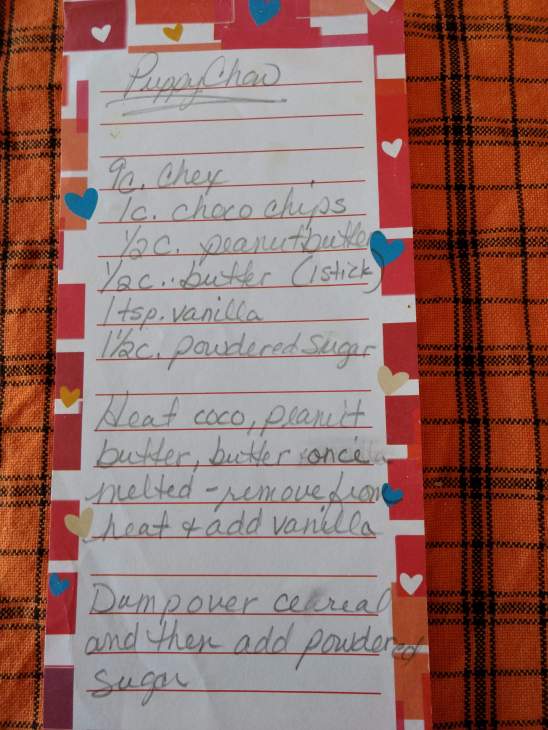 Puppy Chow
9c. Chex
1c. choco chips
1/2 c. peanutbutter
1/2 c. butter (1 stick)
1 tsp. vanilla
1 1/2 c. powdered sugar
Heat coco, peanut
butter, butter once
melted - remove from
heat & add vanilla
Dump over cereal
and then add powdered
sugar